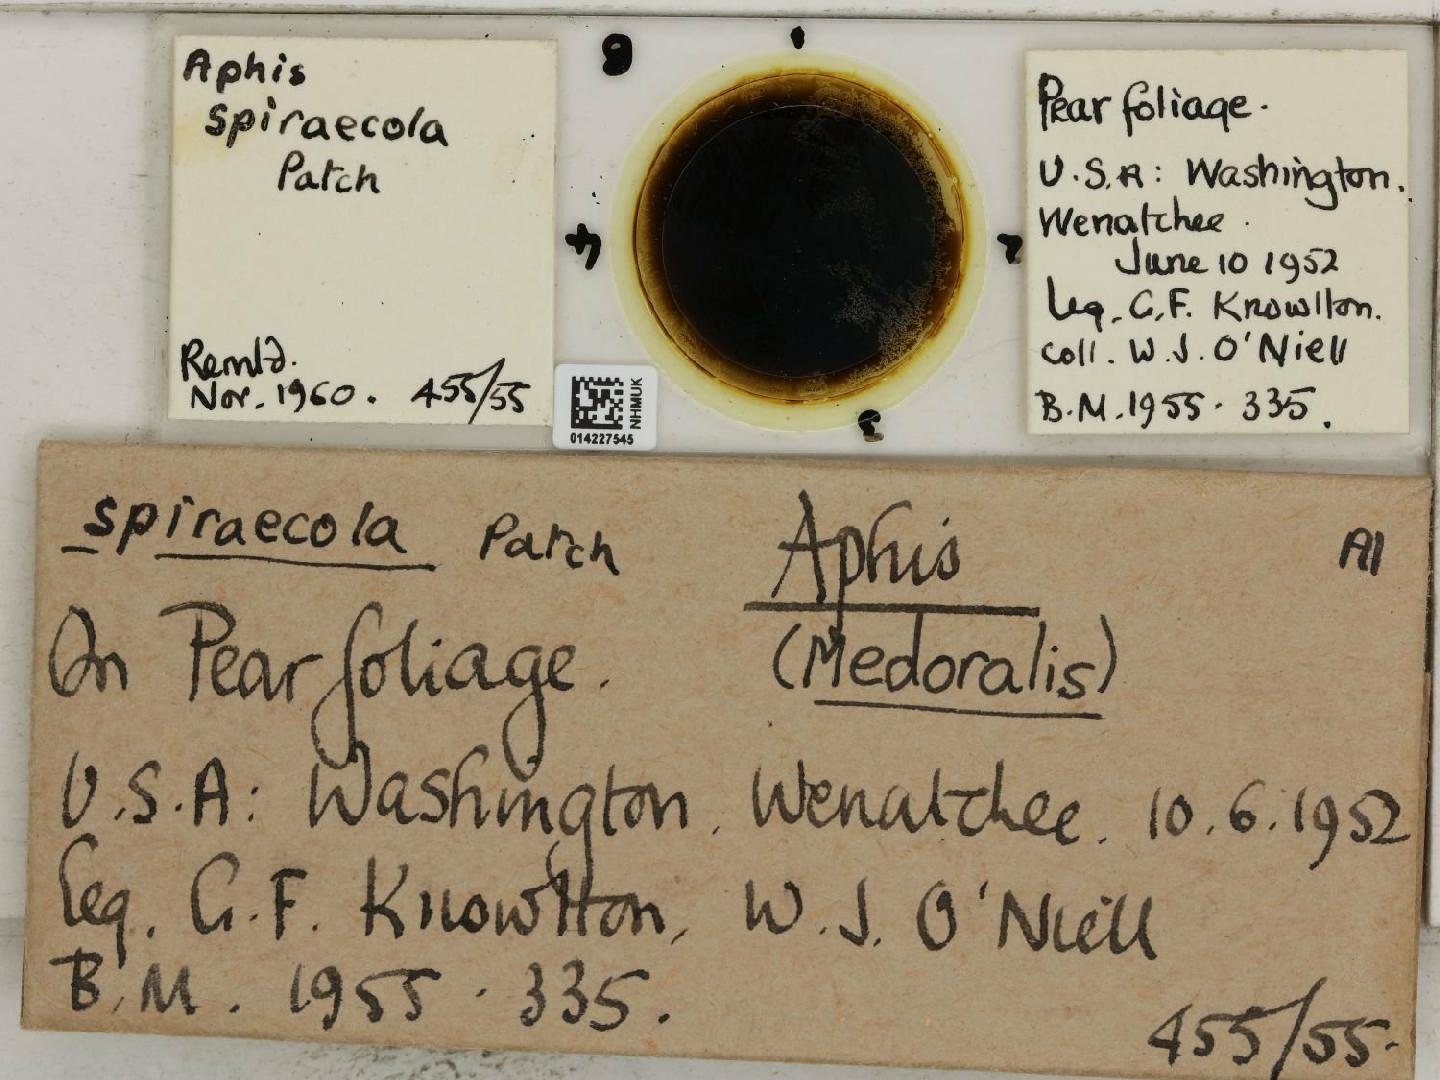 Aphis
spiraecola
Patch
Remtd.
Nov. 1960. 455/55
6
1
2
3
4
NHMUK
014227545
Pear foliage.
U.S.A: Washington.
Wenatchee.
June 10 1952
leg. G.F. Knowlton.
coll. W.J. O'Niell
B.M. 1955. 335.
spiraecola Patch Aphis A1
On Pear foliage. (Medoralis)
U.S.A: Washington. Wenatchee. 10.6.1952
leg. G.F. Knowlton, W.J. O'Niell
B.M. 1955. 335.
455/55.